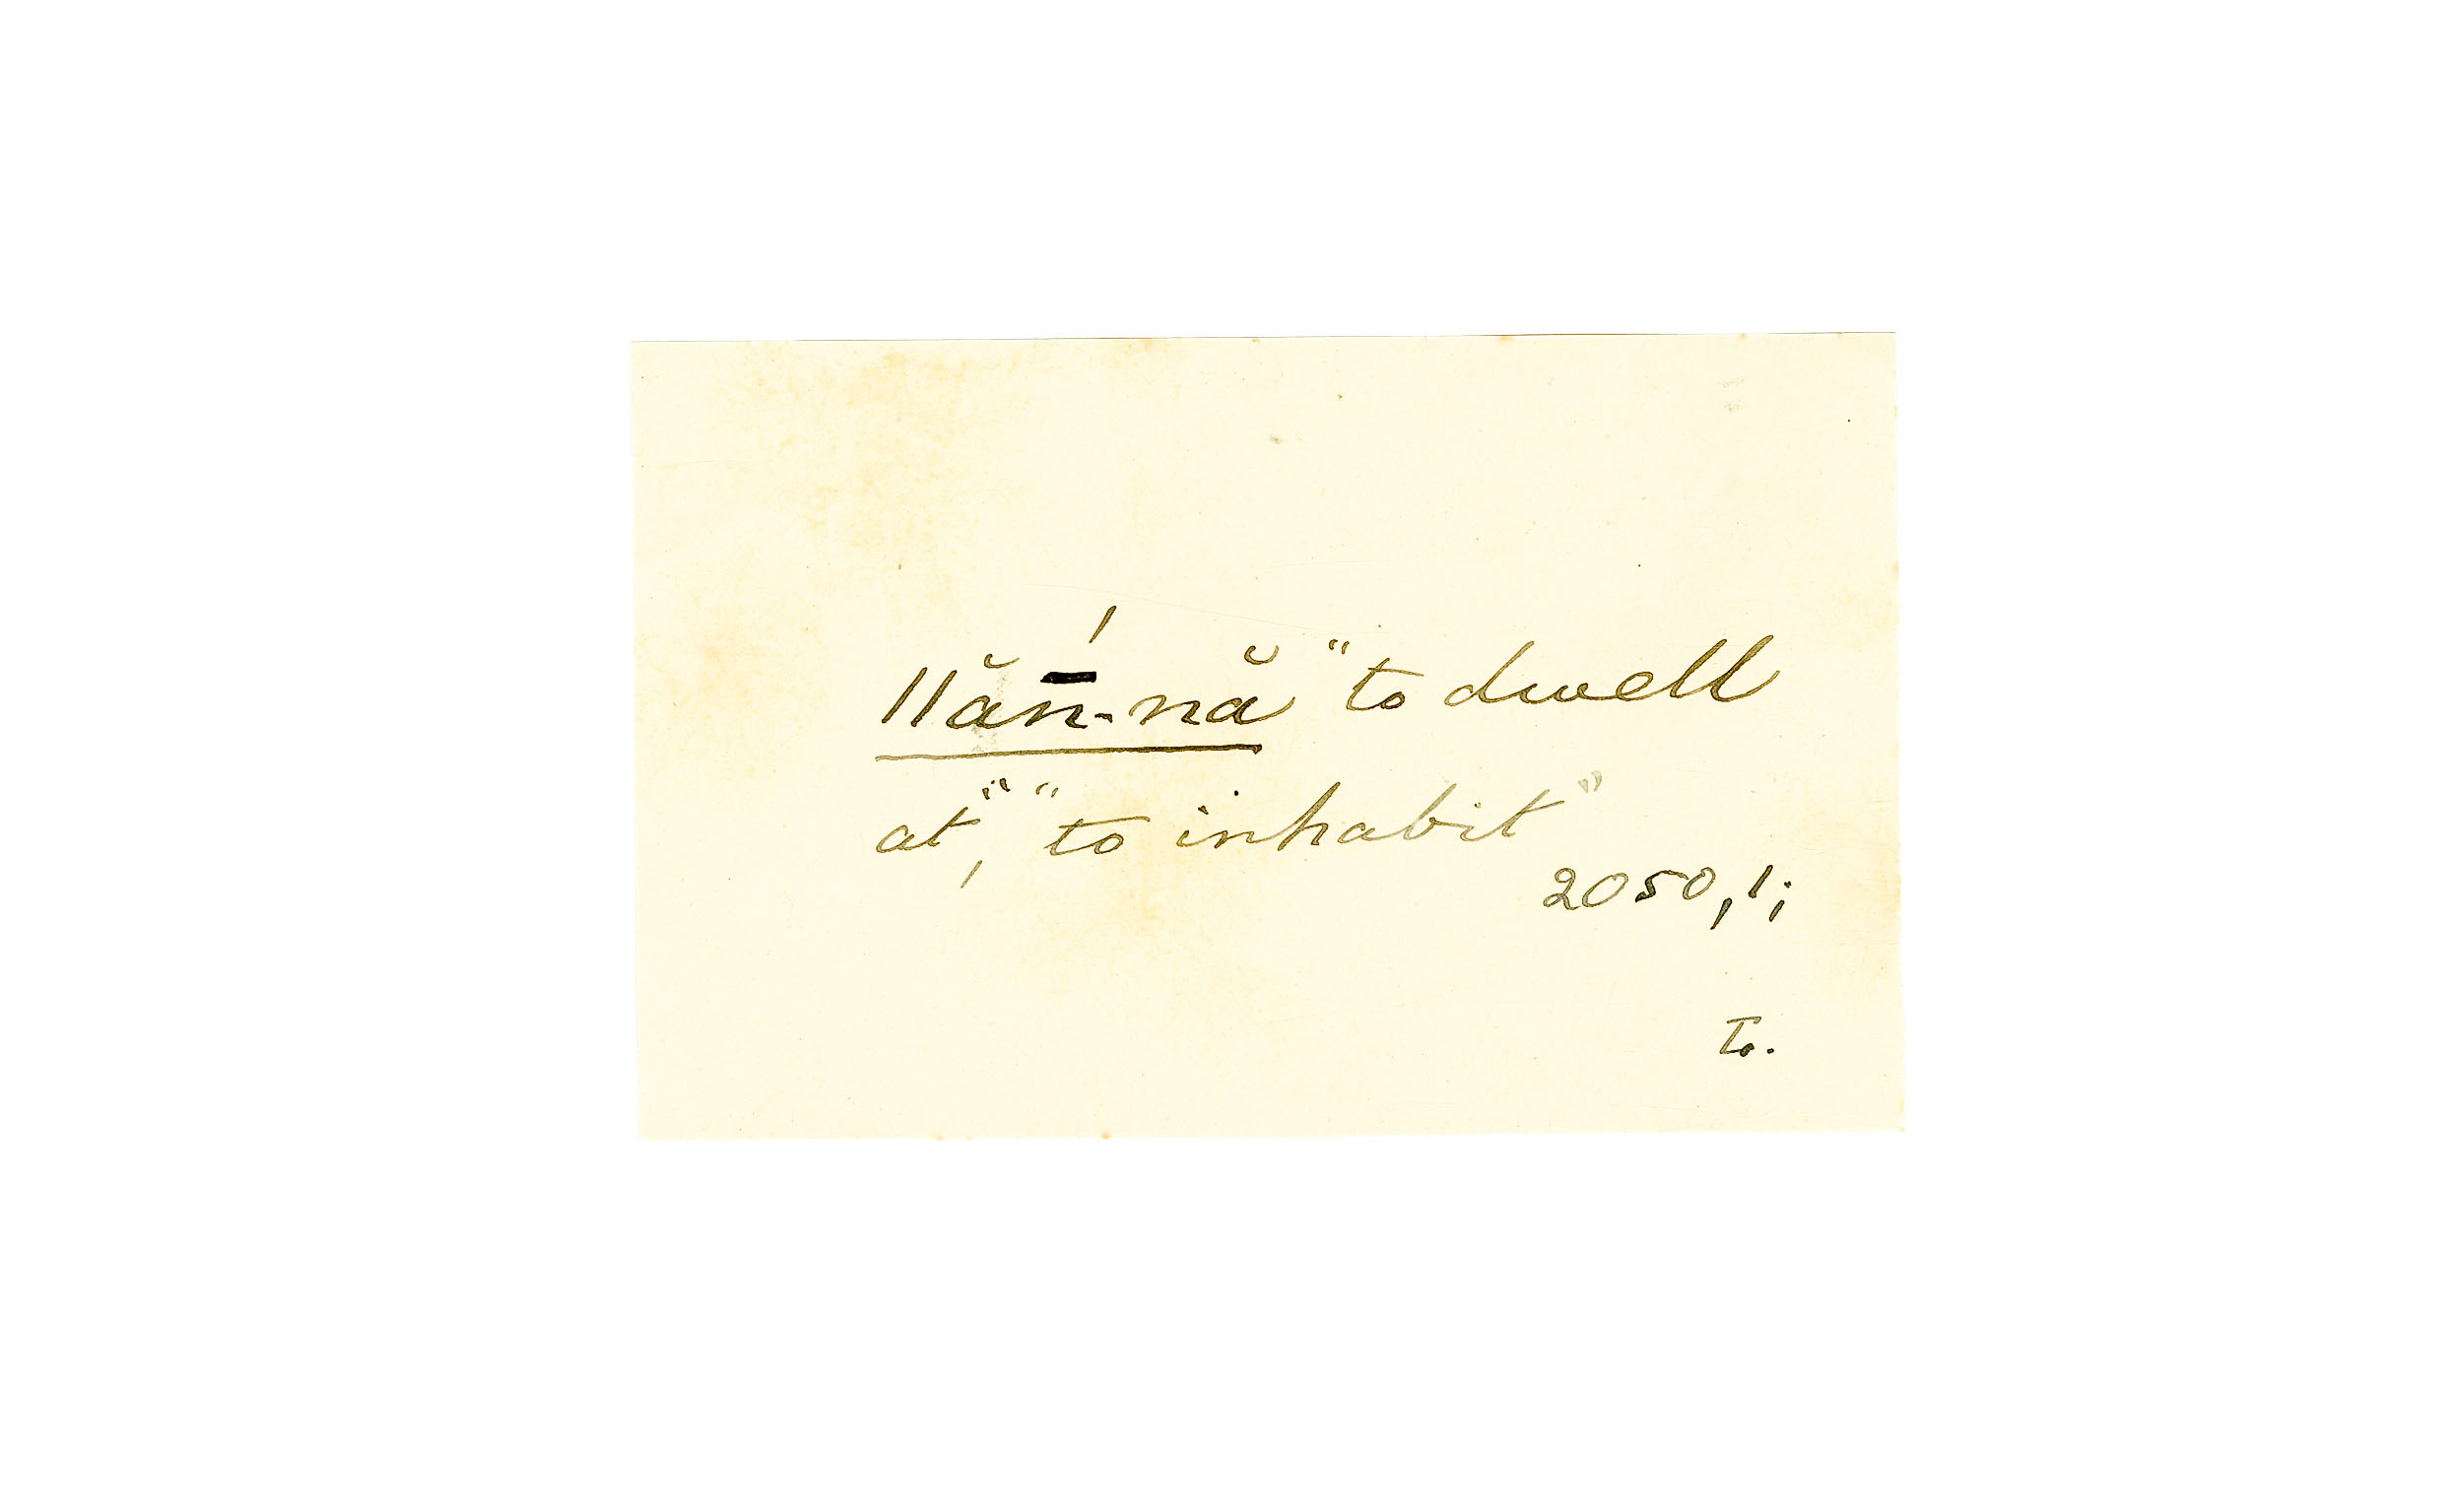 ǁăn̄́-nă "to dwell
at", "to inhabit"
2050, 1;
To.